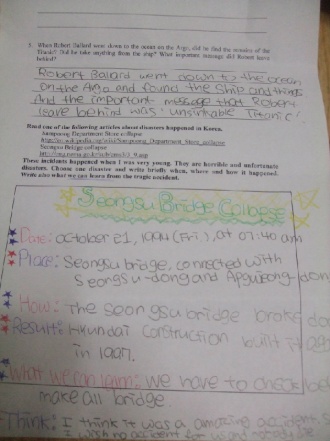 3. When Robert Ballard went down to the ocean on the Argo, did he find the remains of the
Titanic? Did he take anything from the ship? What important message did Robert leave
behind?
Robert Balard went down to the ocean
on the Argo and found the ship and things
And the important message that Robert
leave behind was 'unsinkable Titanic'.
Read one of the following articles about disasters happened in Korea.
Sampoong Department Store collapse
Seongsu Bridge collapse
These incidents happened when I was very young. They are horrible and unfortunate
disasters. Choose one disaster and write briefly when, where and how it happened.
Write also what we can learn from the tragic accident.
Seongsu Bridge Collapse
Date: October 21, 1994 (Fri), at 07:40 am
Place: Seongsu bridge, connected with
Seongsu-dong and Apgujeong-don
How: The seongsu bridge broke do
Result: Hyundai construction built it
in 1997.
What we can learn: we have to check
make all bridge.
Think: I think it was a amazing accident.